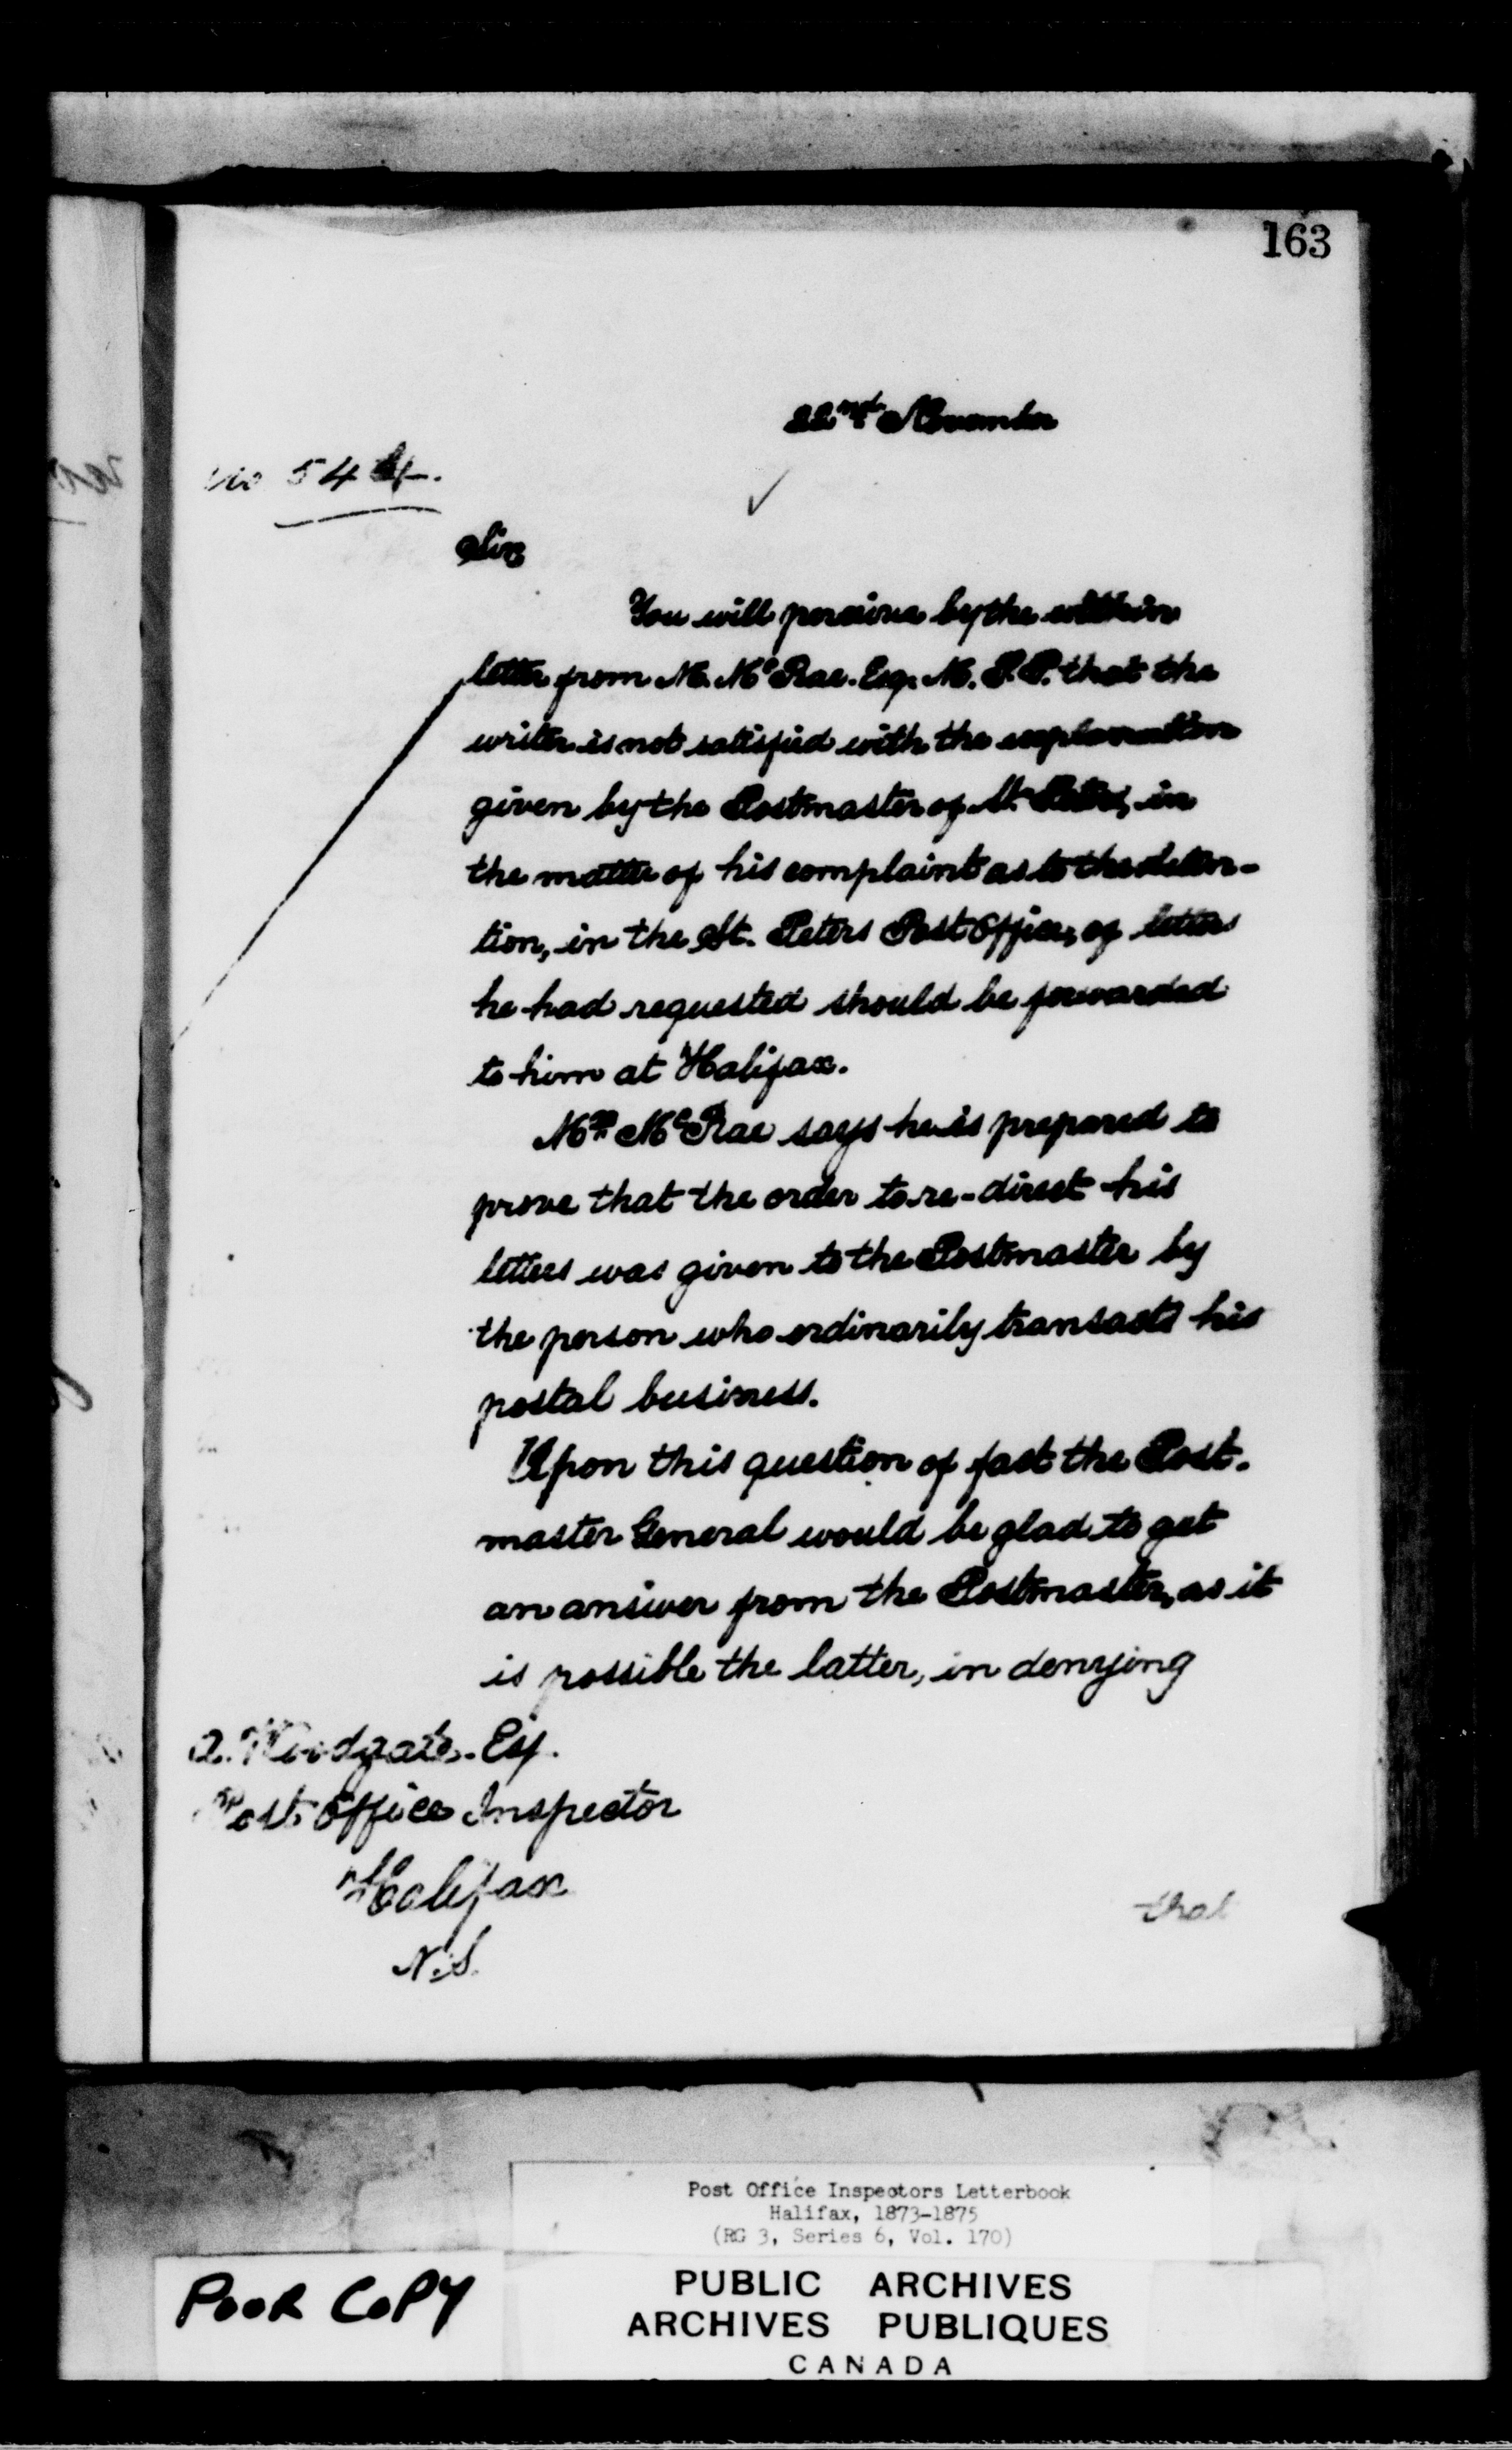 163
22nd November
No 544.
Sir,
You will perceive by the within
letter from M. McRae. Esq. M.P.P. that the
writer is not satisfied with the explanation
given by the Postmaster of St. Peters, in
the matter of his complaint as to the deten-
tion, in the St. Peters Post Office, of letters
he had requested should be forwarded
to him at Halifax.
Mr. McRae says he is prepared to
prove that the order to re-direct his
letters was given to the Postmaster by
the person who ordinarily transacts his
postal business.
Upon this question of fact the Post-
master General would be glad to get
an answer from the Postmaster, as it
is possible the latter, in denying
A. Woodgate. Esq.
Post Office Inspector
Halifax
N.S.
that
Post Office Inspectors Letterbook
Halifax, 1873-1875
(RG 3, Series 6, Vol. 170)
POOR COPY
PUBLIC ARCHIVES
ARCHIVES PUBLIQUES
CANADA